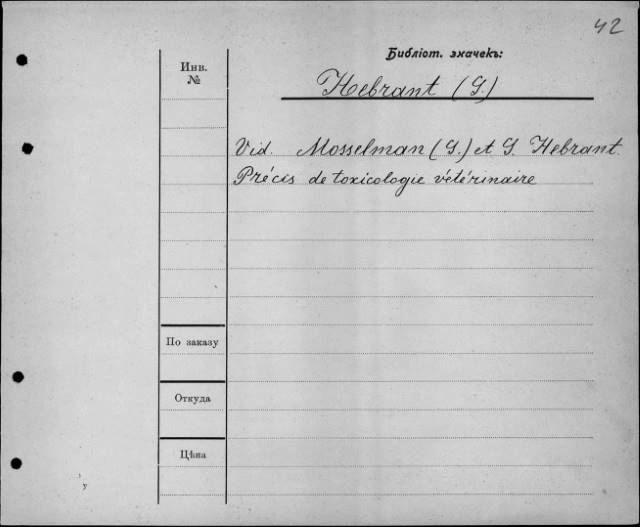 42
Библіот. значекъ:
Инв.
№
Hebrant (G.)
Vid. Mosselman (G.) et G. Hebrant.
Précis de toxicologie vétérinaire
По заказу
Откуда
Цѣна